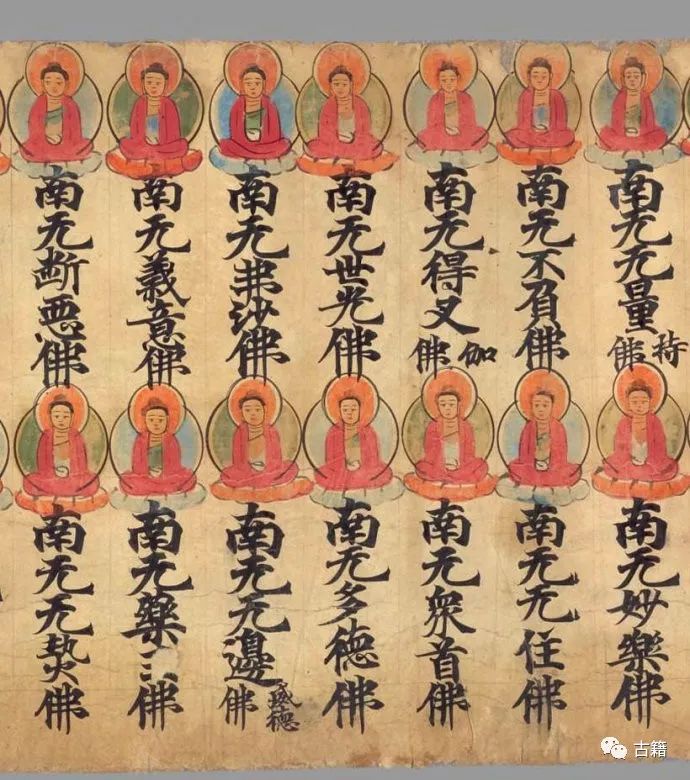 南无无量持佛
南无不負佛
南无得叉伽佛
南无世光佛
南无弗沙佛
南无義意佛
南无断悪佛
南无妙樂佛
南无无住佛
南无衆首佛
南无多德佛
南无无邊威德佛
南无藥佛
南无无热佛
古籍